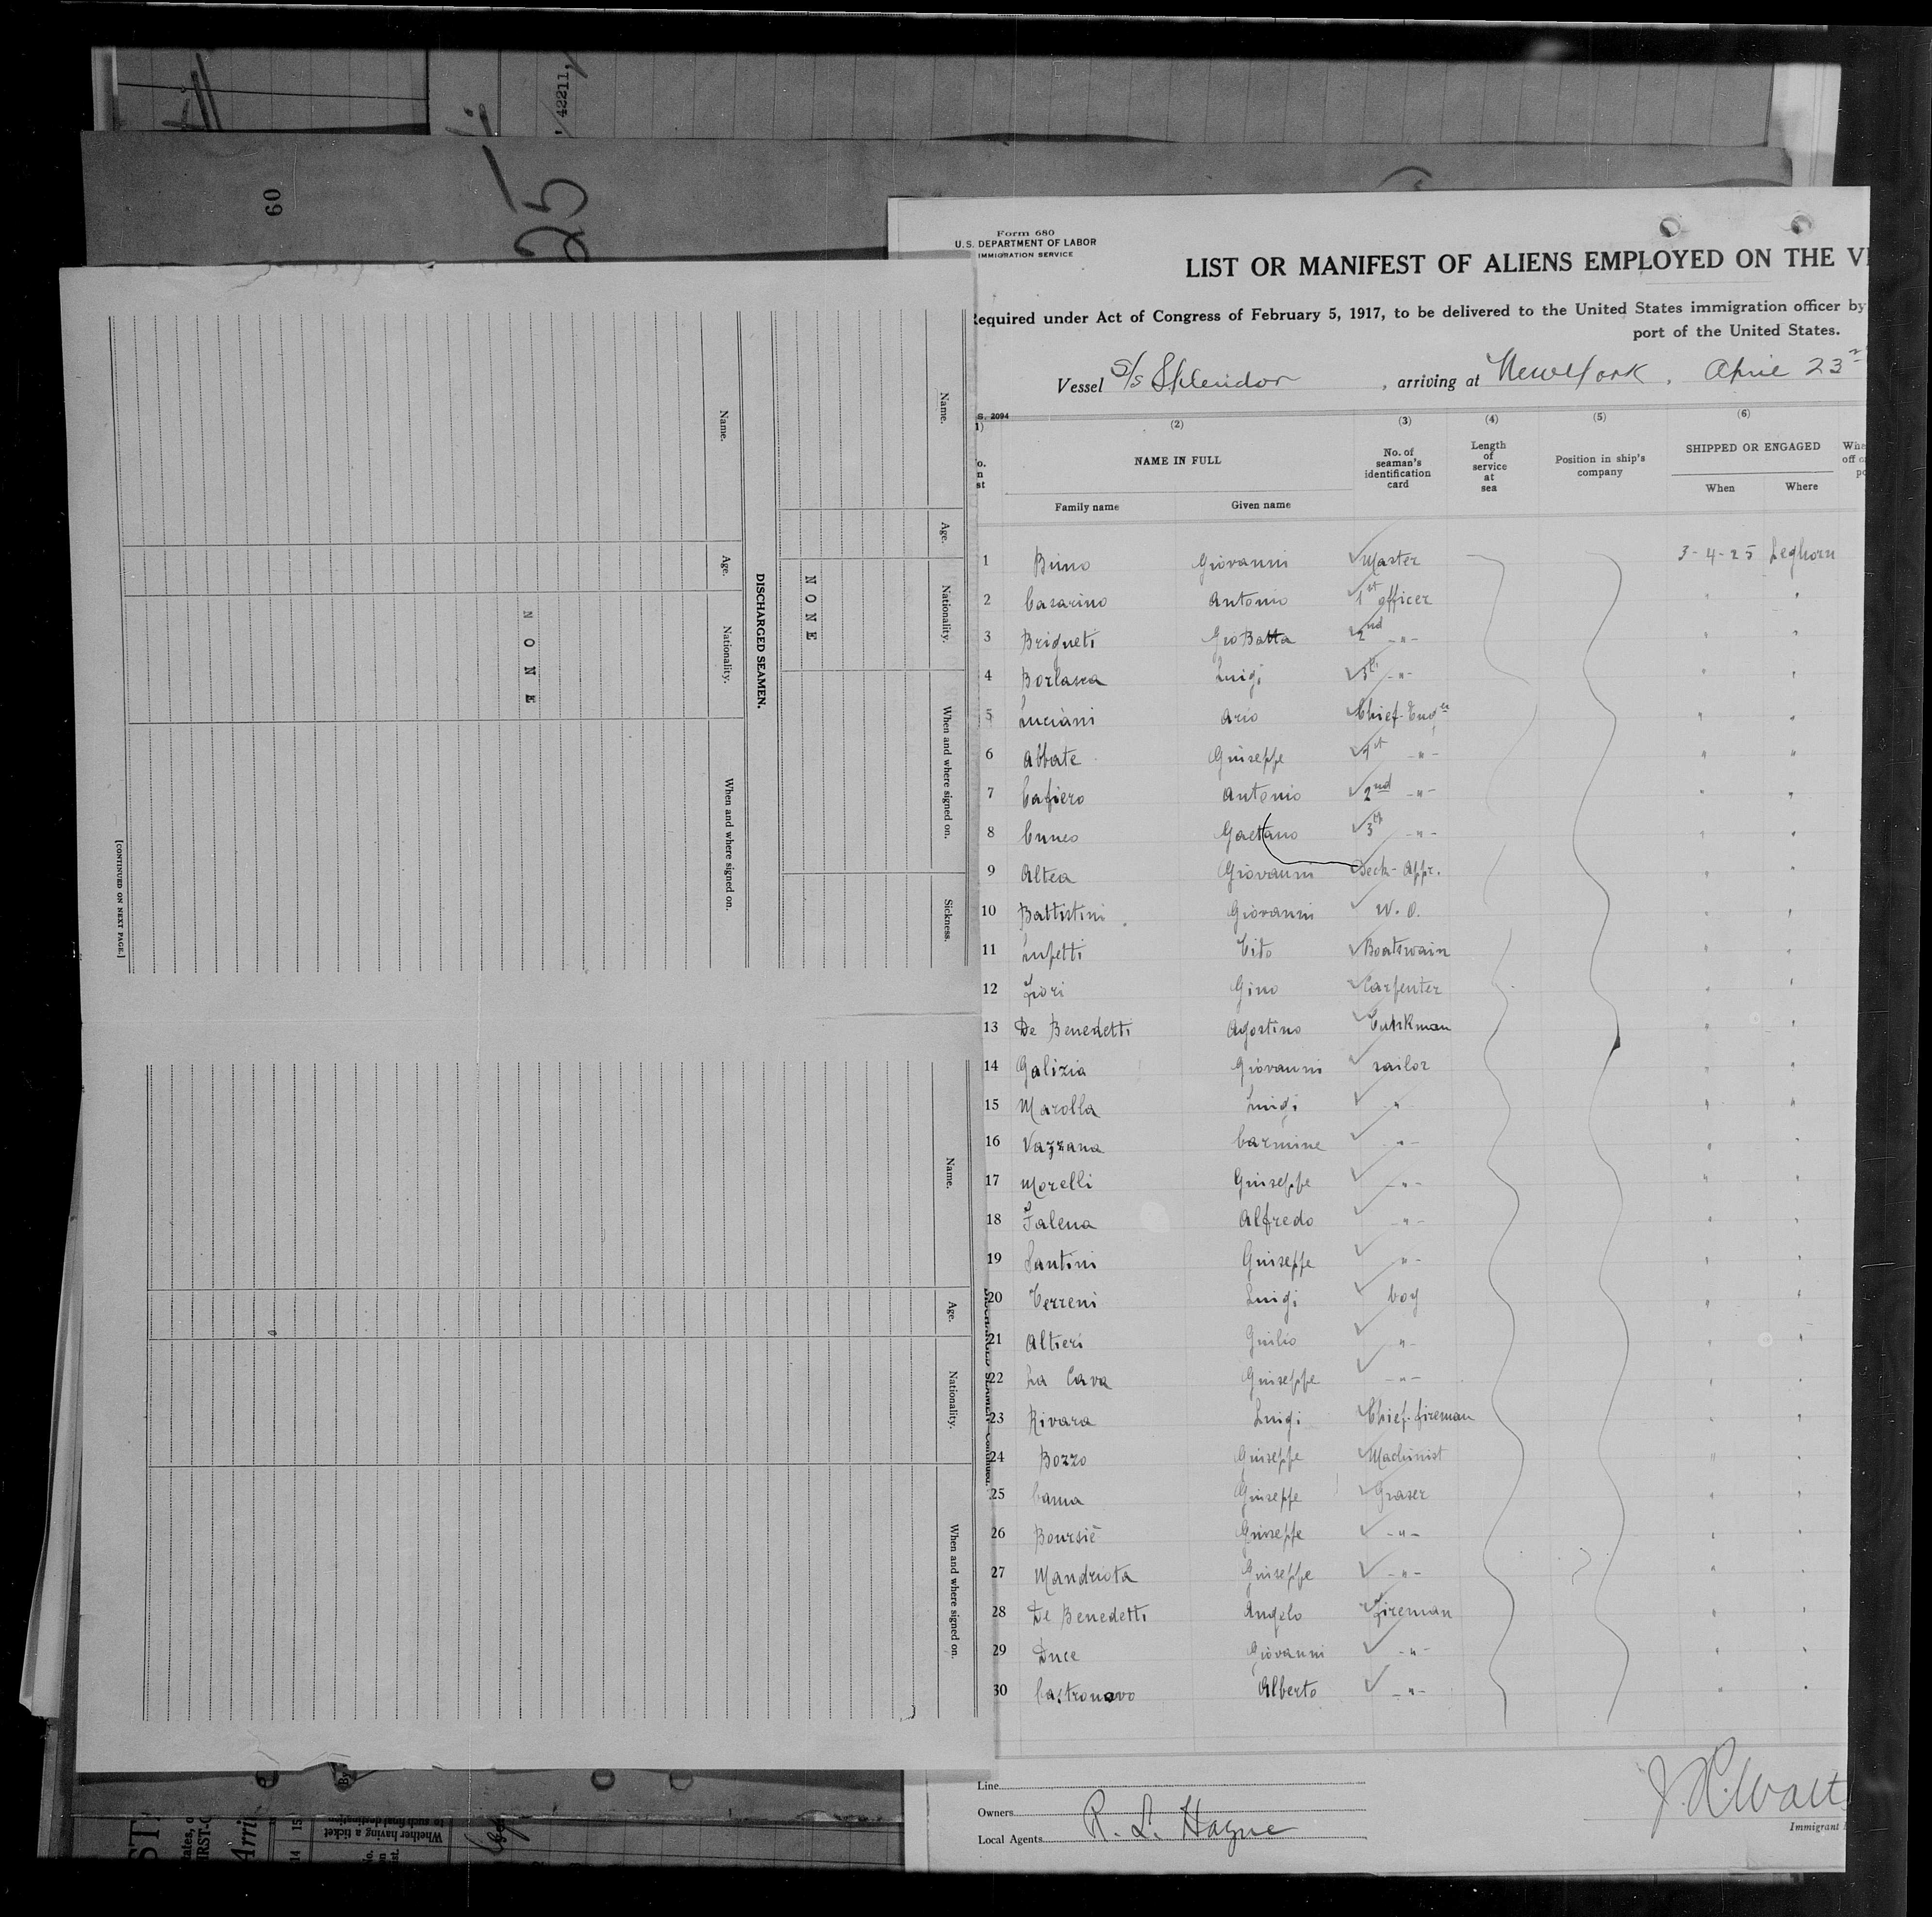 42211,
60
25
Form 680
U. S. DEPARTMENT OF LABOR
IMMIGRATION SERVICE
LIST OR MANIFEST OF ALIENS EMPLOYED ON THE
Required under Act of Congress of February 5, 1917, to be delivered to the United States immigration officer by
port of the United States.
Vessel S/s Splendor, arriving at New York, April 23
S. 2094
(2) (3) (4) (5) (6)
NAME IN FULL
No. of seaman's identification card
Length of service at sea
Position in ship's company
SHIPPED OR ENGAGED
Family name Given name When Where
1 Giovanni Master 3-4-25 Leghorn
2 Casarino Antonio 1st officer " "
3 Brigneti Gio Batta 2nd -"- " "
4 Borlasca Luigi 3th -"- " "
5 Luciani Ario Chief-Eng er " "
6 Abbate Guiseppe 1st -"- " "
7 Cafiero Antonio 2nd -"- " "
8 Cuneo Gaetano 3th -"- " "
9 Altea Giovanni Deck-Appr. " "
10 Battistini Giovanni W. O. " "
11 Lupetti Tito Boatswain " "
12 Fiori Gino Carpenter " "
13 De Benedetti Agostino " "
14 Galizia Giovanni sailor " "
15 Marolla Luigi " " "
16 Vazzana Carmine -"- " "
17 Morelli Guiseppe -"- " "
18 Falena Alfredo -"- " "
19 Santini Guiseppe "- " "
20 Terreni Luigi boy " "
21 Altieri Guilio "- " "
22 La Cava Guiseppe -"- " "
23 Rivara Luigi Chief-fireman " "
24 Bozzo Guiseppe Machinist " "
25 Cama Guiseppe Graser " "
26 Boursiè Guiseppe -"- " "
27 Mandriota Guiseppe -"- " "
28 De Benedetti Angelo Fireman " "
29 Duce Giovanni -"- " "
30 Castronovo Alberto -"- " "
Line
Owners
Local Agents R. L. Hague
Immigrant
Name.
Age.
Nationality.
When and where signed on.
Sickness.
NONE
DISCHARGED SEAMEN.
Name.
Age.
Nationality.
When and where signed on.
NONE
[CONTINUED ON NEXT PAGE]
Name.
Age.
Nationality.
When and where signed on.
Whether having a ticket
to such final destination
14 15